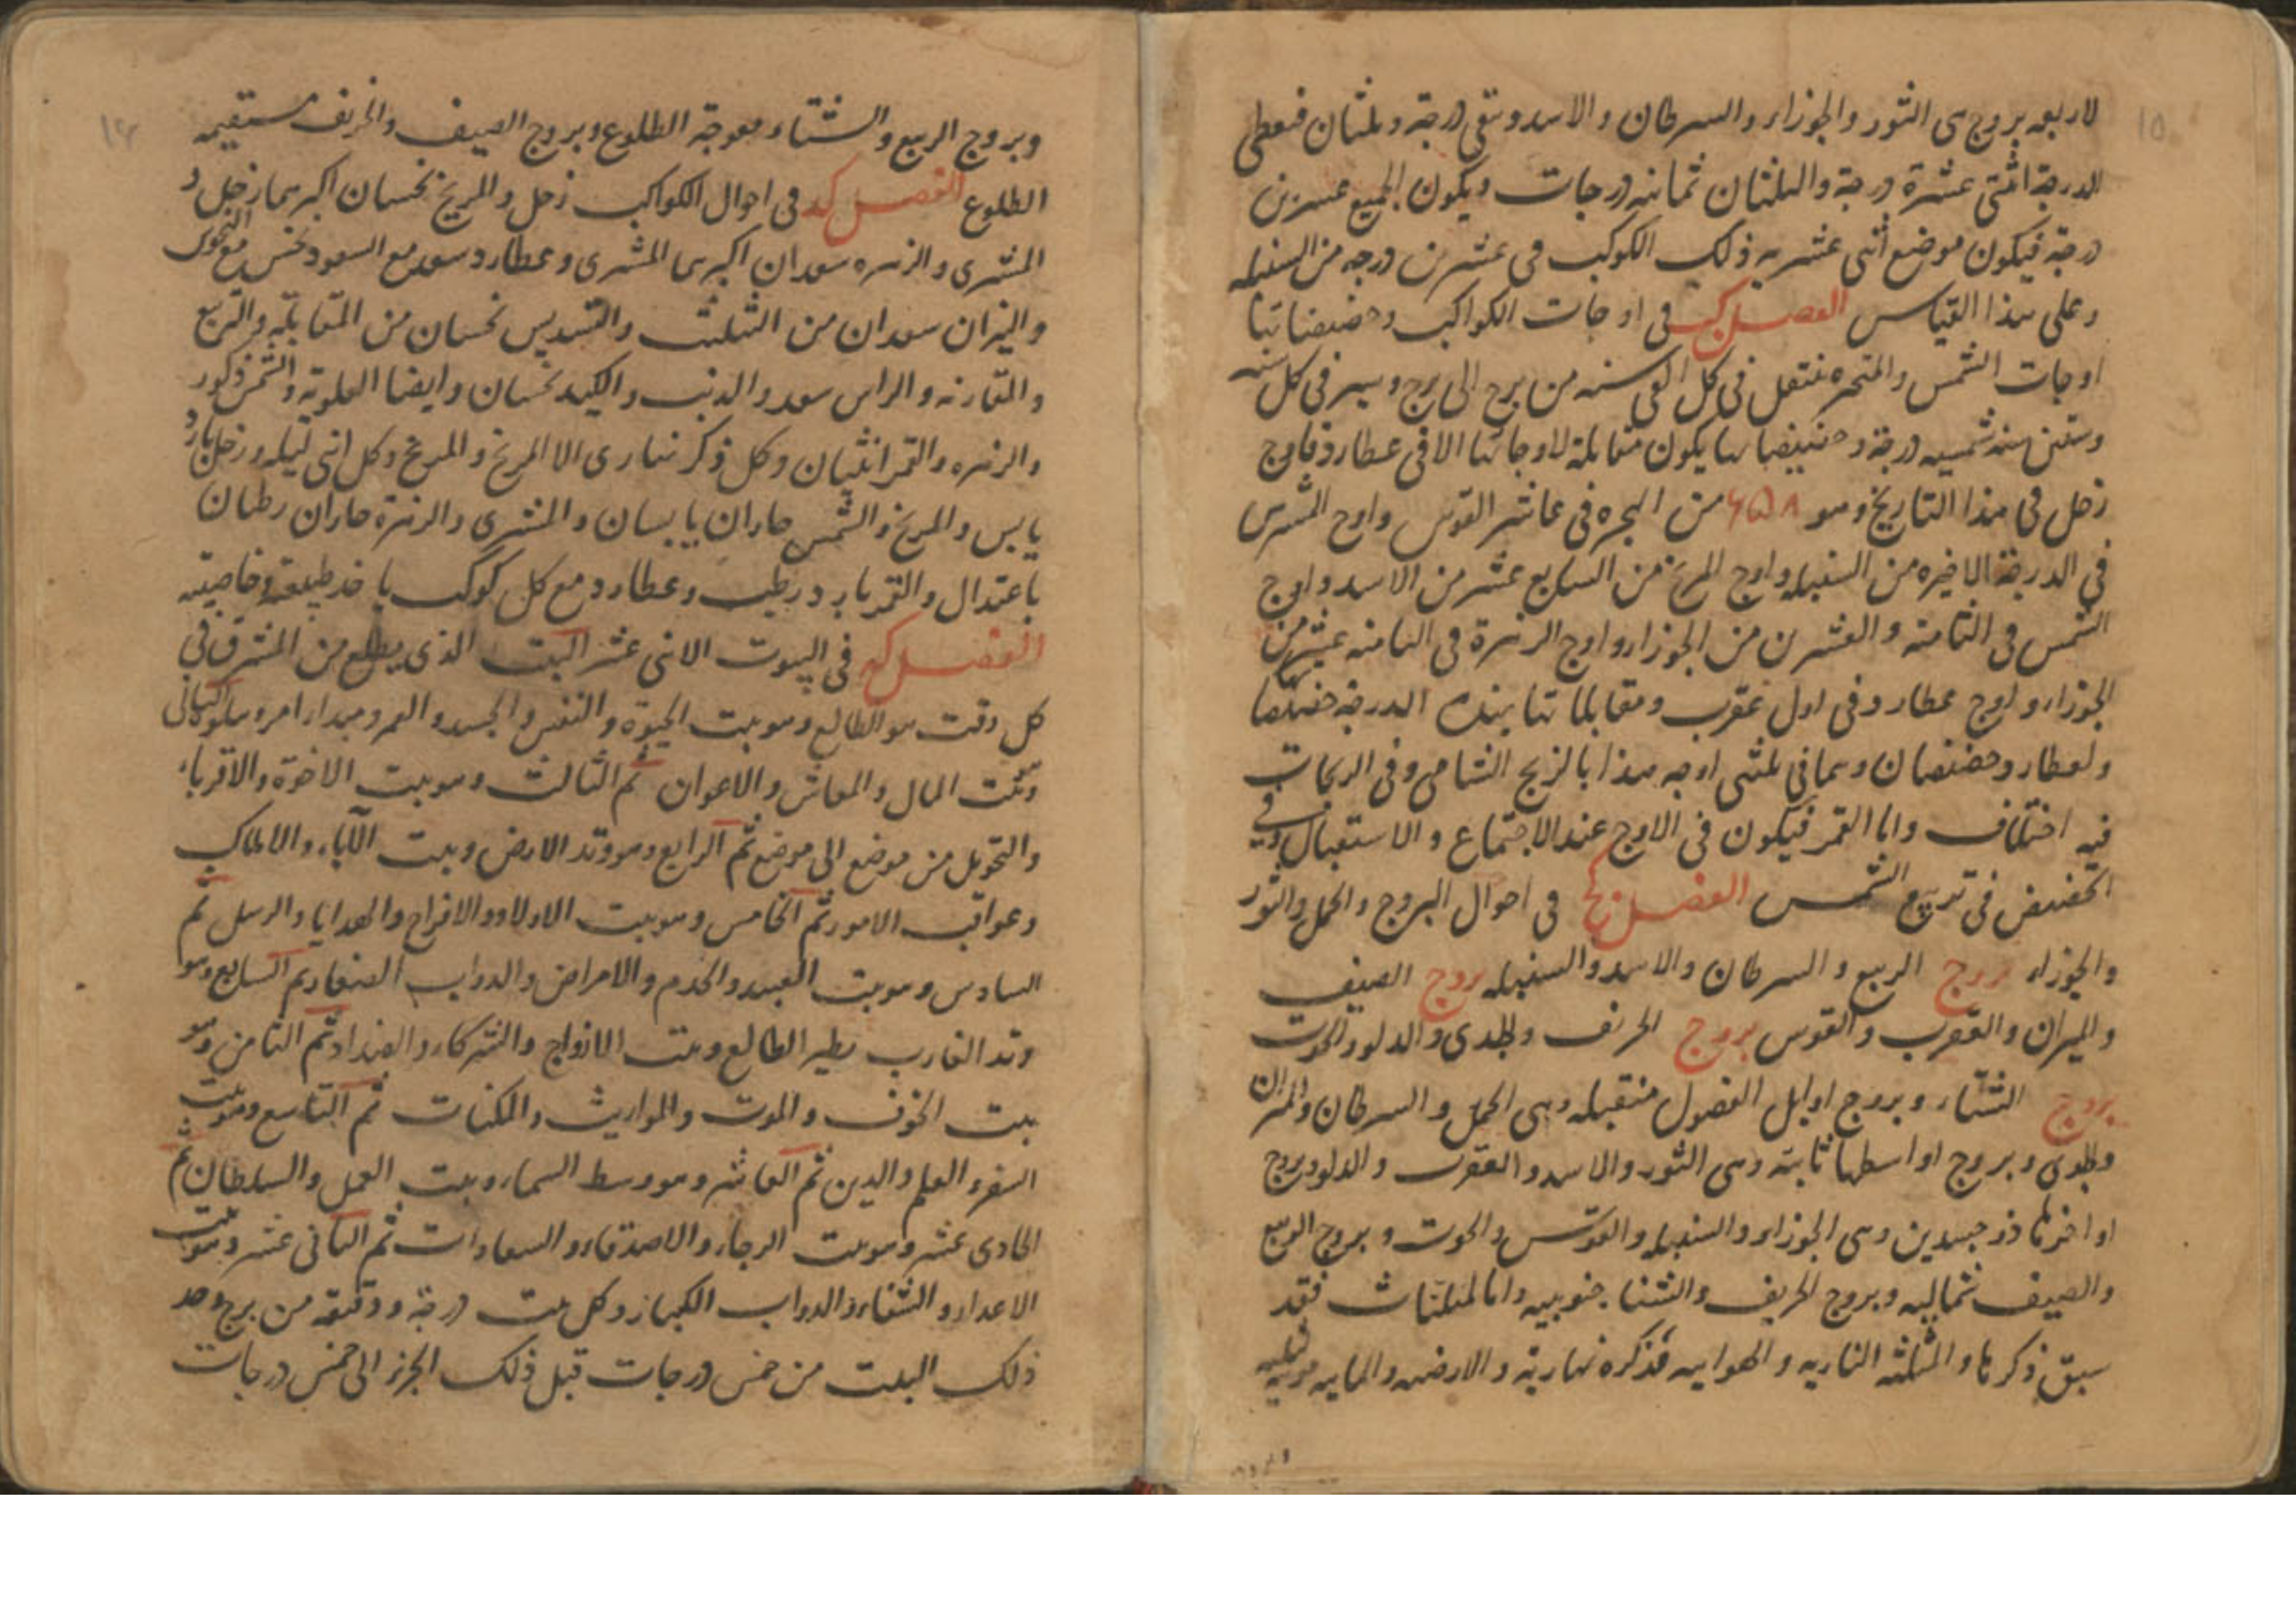 ١٥
لاربعه بروج هى الثور والجوزاء والسرطان والاسد وتبقى درجة وثلثان فنعطى
الدرجة اثنتى عشرة درجة والثلثان ثمانيه درجات ويكون الجميع عسرين
درجة فيكون موضع اثنى عشريه ذلك الكوكب فى عشرين درجه من السنبله
وعلى هذا القياس الفصل كب فى اوجات الكواكب وحضيضاتها
اوجات الشمس والمتحيره ينتقل فى كل الفى سنه من برج الى برج ويسير فى كل ستة
وستين سنة شمسيه درجة وحضيضاتها يكون مقابلة لاوجاتها الا فى عطارد فاوج
زحل فى هذا التاريخ وهو ٦٥٨ من الهجره فى عاشر القوس واوج المشترى
فى الدرجة الاخيره من السنبله واوج المريخ من السابع عشر من الاسد واوج
الشمس فى الثامنة والعشرين من الجوزاء واوج الزهرة فى الثامنه عشرين من
الجوزاء واوج عطارد فى اول عقرب ومقابلاتها بهذه الدرجة حضيضها
ولعطارد حضيضان وهما فى ثلثى اوجه هذا بالزيج الشاهى وفى الزيجات
فيه اختلاف واما القمر فيكون فى الاوج عند الاجتماع والاستقبال وفى
الحضيض فى تربيع الشمس الفصل كج فى احوال البروج والحمل والثور
والجوزاء بروج الربيع والسرطان والاسد والسنبله بروج الصيف
والميزان والعقرب والقوس بروج الخريف والجدى والدلو والحوت
بروج الشتاء وبروج اوايل الفصول منقلبه وهى الحمل والسرطان والميزان
والجدى وبروج اواسطها ثابتة وهى الثور والاسد والعقرب والدلو وبروج
اواخرها ذو جسدين وهى الجوزاء والسنبله والقوس والحوت وبروج الربيع
والصيف شماليه وبروج الخريف والشتا جنوبيه واما المثلثات فقد
سبق ذكرها والمثلثه الناريه والهوايه مذكره نهارية والارضيه والمائيه مونثه ليليه
وبروج الربيع والشتاء معوجة الطلوع وبروج الصيف والخريف مستقيمه
الطلوع الفصل كد فى احوال الكواكب زحل والمريخ نحسان اكبرهما زحل و
المشترى والزهره سعدان اكبرهما المشترى وعطارد سعد مع السعود نحس مع النحوس
والنيران سعدان من التثليث والتسديس نحسان من المقابلة والتربيع
والمقارنه والراس سعد والذنب والكيد نحسان وايضا العلوية والشمس ذكور
والزهره والقمر انثيان وكل ذكر نهارى الا المريخ والمريخ وكل انثى ليليه وزحل بارد
يابس والمريخ والشمس حاران يابسان والمشترى والزهرة حاران رطبان
باعتدال والقمر بارد رطب وعطارد مع كل كوكب ياخذ طبيعته وخاصيته
الفصل كه فى البيوت الاثنى عشر البيت الذى يطلع من المشرق فى
كل وقت هو الطالع وهو بيت الحيوة والنفس والجسد والعمر ومبدا امر ويتلوه الثانى
وهو بيت المال والمعاش والاعوان ثم الثالث وهو بيت الاخوة والاقرباء
والتحويل من موضع الى موضع ثم الرابع وهو وتد الارض وبيت الآباء والاملاك
وعواقب الامور ثم الخامس وهو بيت الاولاد والافراح والهدايا والرسل ثم
السادس وهو بيت العبيد والخدم والامراض والدواب الصغار ثم السابع وهو
وتد الغارب نظير الطالع وبيت الازواج والشركاء والاضداد ثم الثامن وهو
بيت الخوف والموت والمواريث والمكنات ثم التاسع وهو بيت
السفر والعلم والدين ثم العاشر وهو وسط السماء وبيت العمل والسلطان ثم
الحادى عشر وهو بيت الرجاء والاصدقاء والسعادات ثم الثانى عشر وهو بيت
الاعداء والشقاء والدواب الكبار وكل بيت درجة ودقيقة من برج وحد
ذلك البيت من خمس درجات قبل ذلك الجزء الى خمس درجات